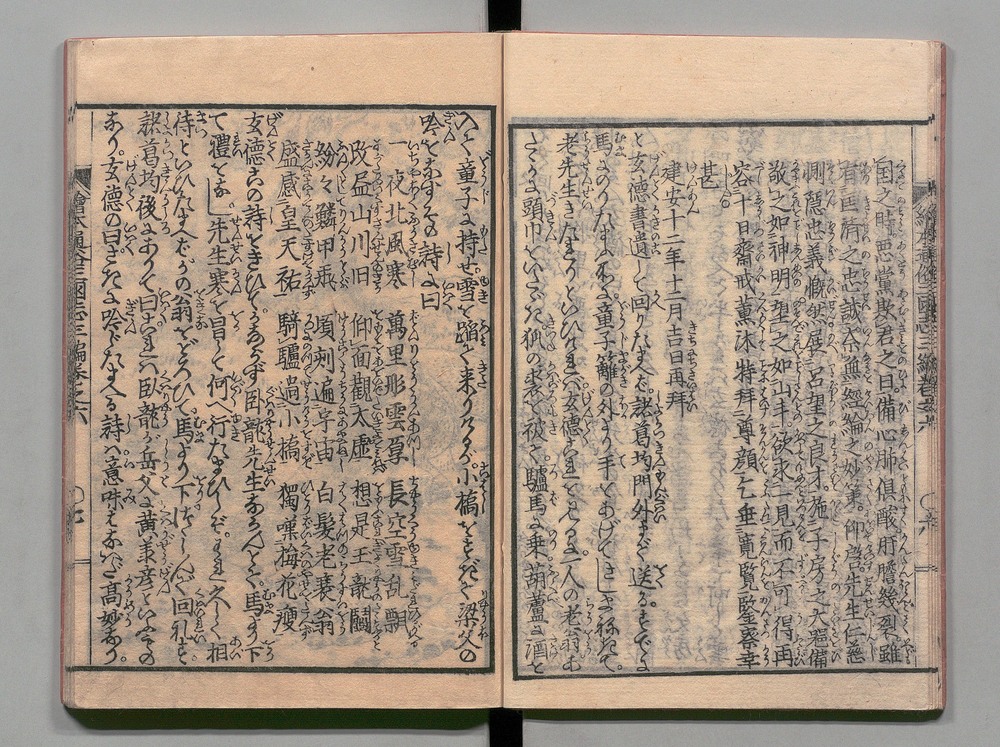 国之時悪黨欺君之日備心肺俱酸肝膽幾裂雖
有匡濟之忠誠奈無經綸之妙策仰啓先生仁慈
惻隠忠義慨然展呂望之良才施子房之大器備
敬之如神明望之如山斗欲求一見而不可得再
容十日齋戒薫沐特拜尊顔乞垂寛覧鑒察幸
甚
建安十二年十二月吉日再拜
と玄德書遺して回りたまへば諸葛均門外まで送る
馬よのりたまふ童子籬の外より手をあげて
老先生きたまうといひければ玄德 一人の老翁
頭巾 狐の裘を被て驢馬に乗葫蘆に酒を
繪本通俗三國志三編巻之六
入て童子に持せ雪を踏て来りける 小橋をすぎて梁父の
吟 詩に曰
一夜北風寒 萬里彤雲厚 長空雪乱飄
改盡山川旧 仰面觀太虚 想是玉龍鬪
紛々鱗甲飛 頃刻遍宇宙 白髪老衰翁
盛感皇天祐 騎驢過小橋 獨嘆梅花瘦
玄德この詩をきひて 臥龍先生ならんとて馬より下
て禮をなし先生寒を冒して何へ行たまひしぞ 久しく相
侍といひたまへばかの翁をどろひて馬より下 回礼す
諸葛均後にありて曰 臥龍が岳父黄承彦といふもの
なり玄德の曰 吟じたまへる詩 意味 高妙なり
繪本通俗三國志三編巻之六
七